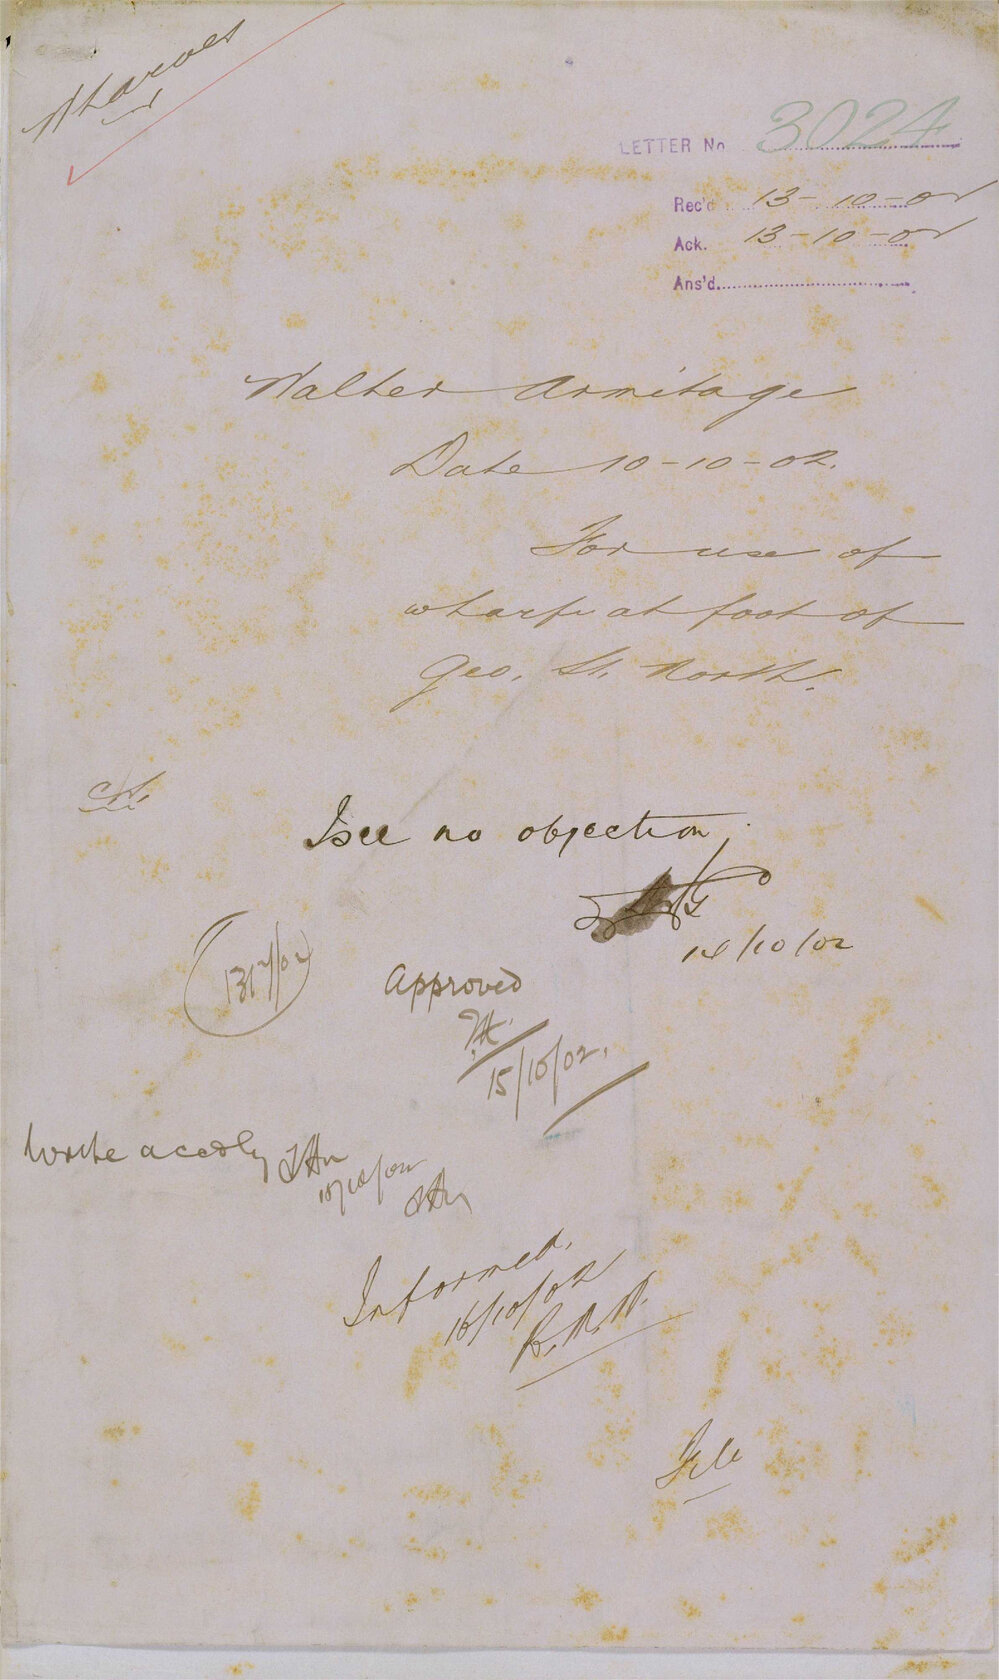 Wharves
LETTER No 3024
Rec'd 13-10-02
Ack. 13-10-02
Ans'd.
Walter Armitage
Date 10-10-02.
For use of
wharf at foot of
Geo. St. North.
I see no objection
14/10/02
Approved
15/10/02.
Write accdly
15/10/02
Informed.
16/10/02
File